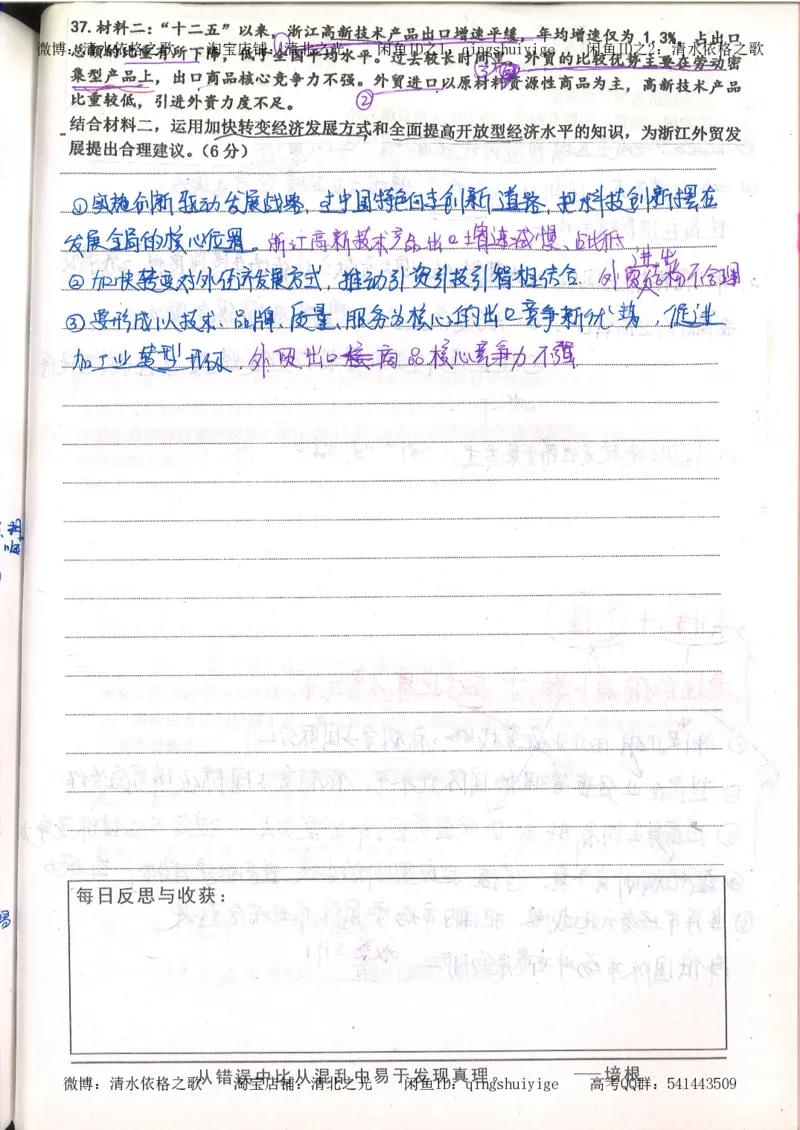 37.材料二:“十二五”以来,浙江高新技术产品出口增速平缓,年均增速仅为 1.3%,占出口
微博:清水依格之歌 淘宝店铺:清北之光 闲鱼ID之1:qingshuiyige 闲鱼ID之2:清水依格之歌
总额的比重有所下降,低于全国平均水平。过去较长时间里,外贸的比较优势主要在劳动密
集型产品上,出口商品核心竞争力不强。外贸进口以原材料资源性商品为主,高新技术产品
比重较低,引进外资力度不足。
结合材料二,运用加快转变经济发展方式和全面提高开放型经济水平的知识,为浙江外贸发
展提出合理建议。(6 分)
①实施创新驱动发展战略,走中国特色自主创新道路,把科技创新摆在
发展全局的核心位置。浙江高新技术产品出口增速减慢、占比低
②加快转变对外经济发展方式,推动引资引技引智相结合. 外贸进出结构不合理
③要形成以技术、品牌、质量、服务为核心的出口竞争新优势,促进
加工业转型升级,外贸出口商品核心竞争力不强
每日反思与收获:
从错误中比从混乱中易于发现真理。 ——培根
微博:清水依格之歌 淘宝店铺:清北之光 闲鱼ID:qingshuiyige 高考QQ群:541443509